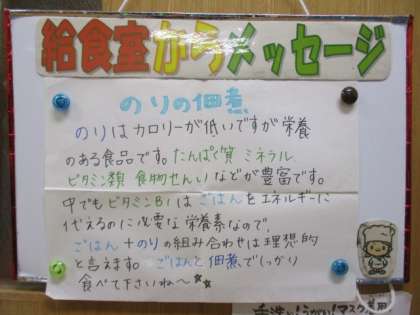 給食室からメッセージ
のりの佃煮
のりはカロリーが低いですが栄養
のある食品です。たんぱく質 ミネラル
ビタミン類 食物せんいなどが豊富です。
中でもビタミンB1はごはんをエネルギーに
代えるのに必要な栄養素なので、
ごはん+のりの組み合わせは理想的
と言えます。ごはんと佃煮でしっかり
食べて下さいね〜☆☆
手洗い うがい！マスク着用